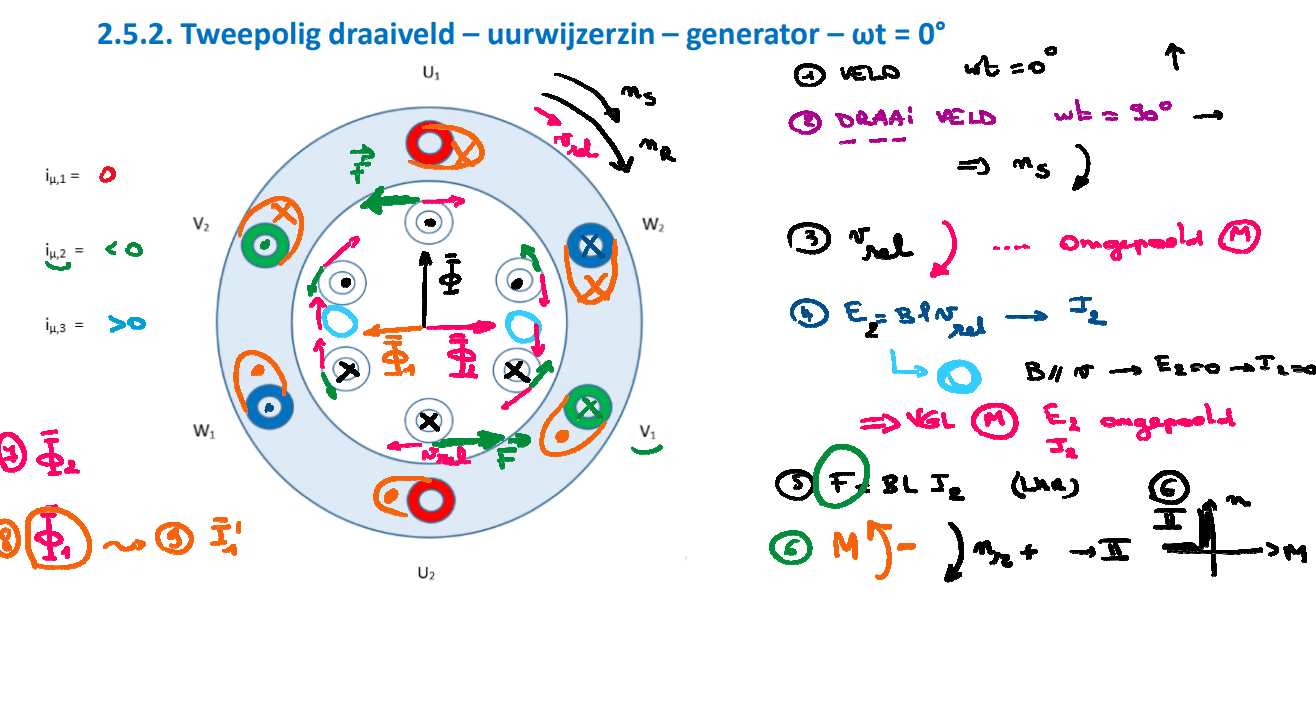 2.5.2. Tweepolig draaiveld – uurwijzerzin – generator – ωt = 0°
U₁
n_S
n_R
v_rel
F
i_μ,1 = 0
V₂
W₂
i_μ,2 = < 0
i_μ,3 = > 0
Φ
Φ₁
Φ₂
W₁
V₁
v_rel
F
U₂
7 Φ₂
8 Φ₁ 9 I₁'
① VELD ωt = 0° ↑
② DRAAI VELD ωt = 90° →
⇒ n_S
③ v_rel .... omgepoold M
④ E₂ = B l v_rel → I₂
B // v → E₂=0 → I₂=0
⇒ VGL M E₂ omgepoold
I₂
⑤ F = B L I₂ (LHR)
⑥ M - n_R + → II
⑥ II n
M